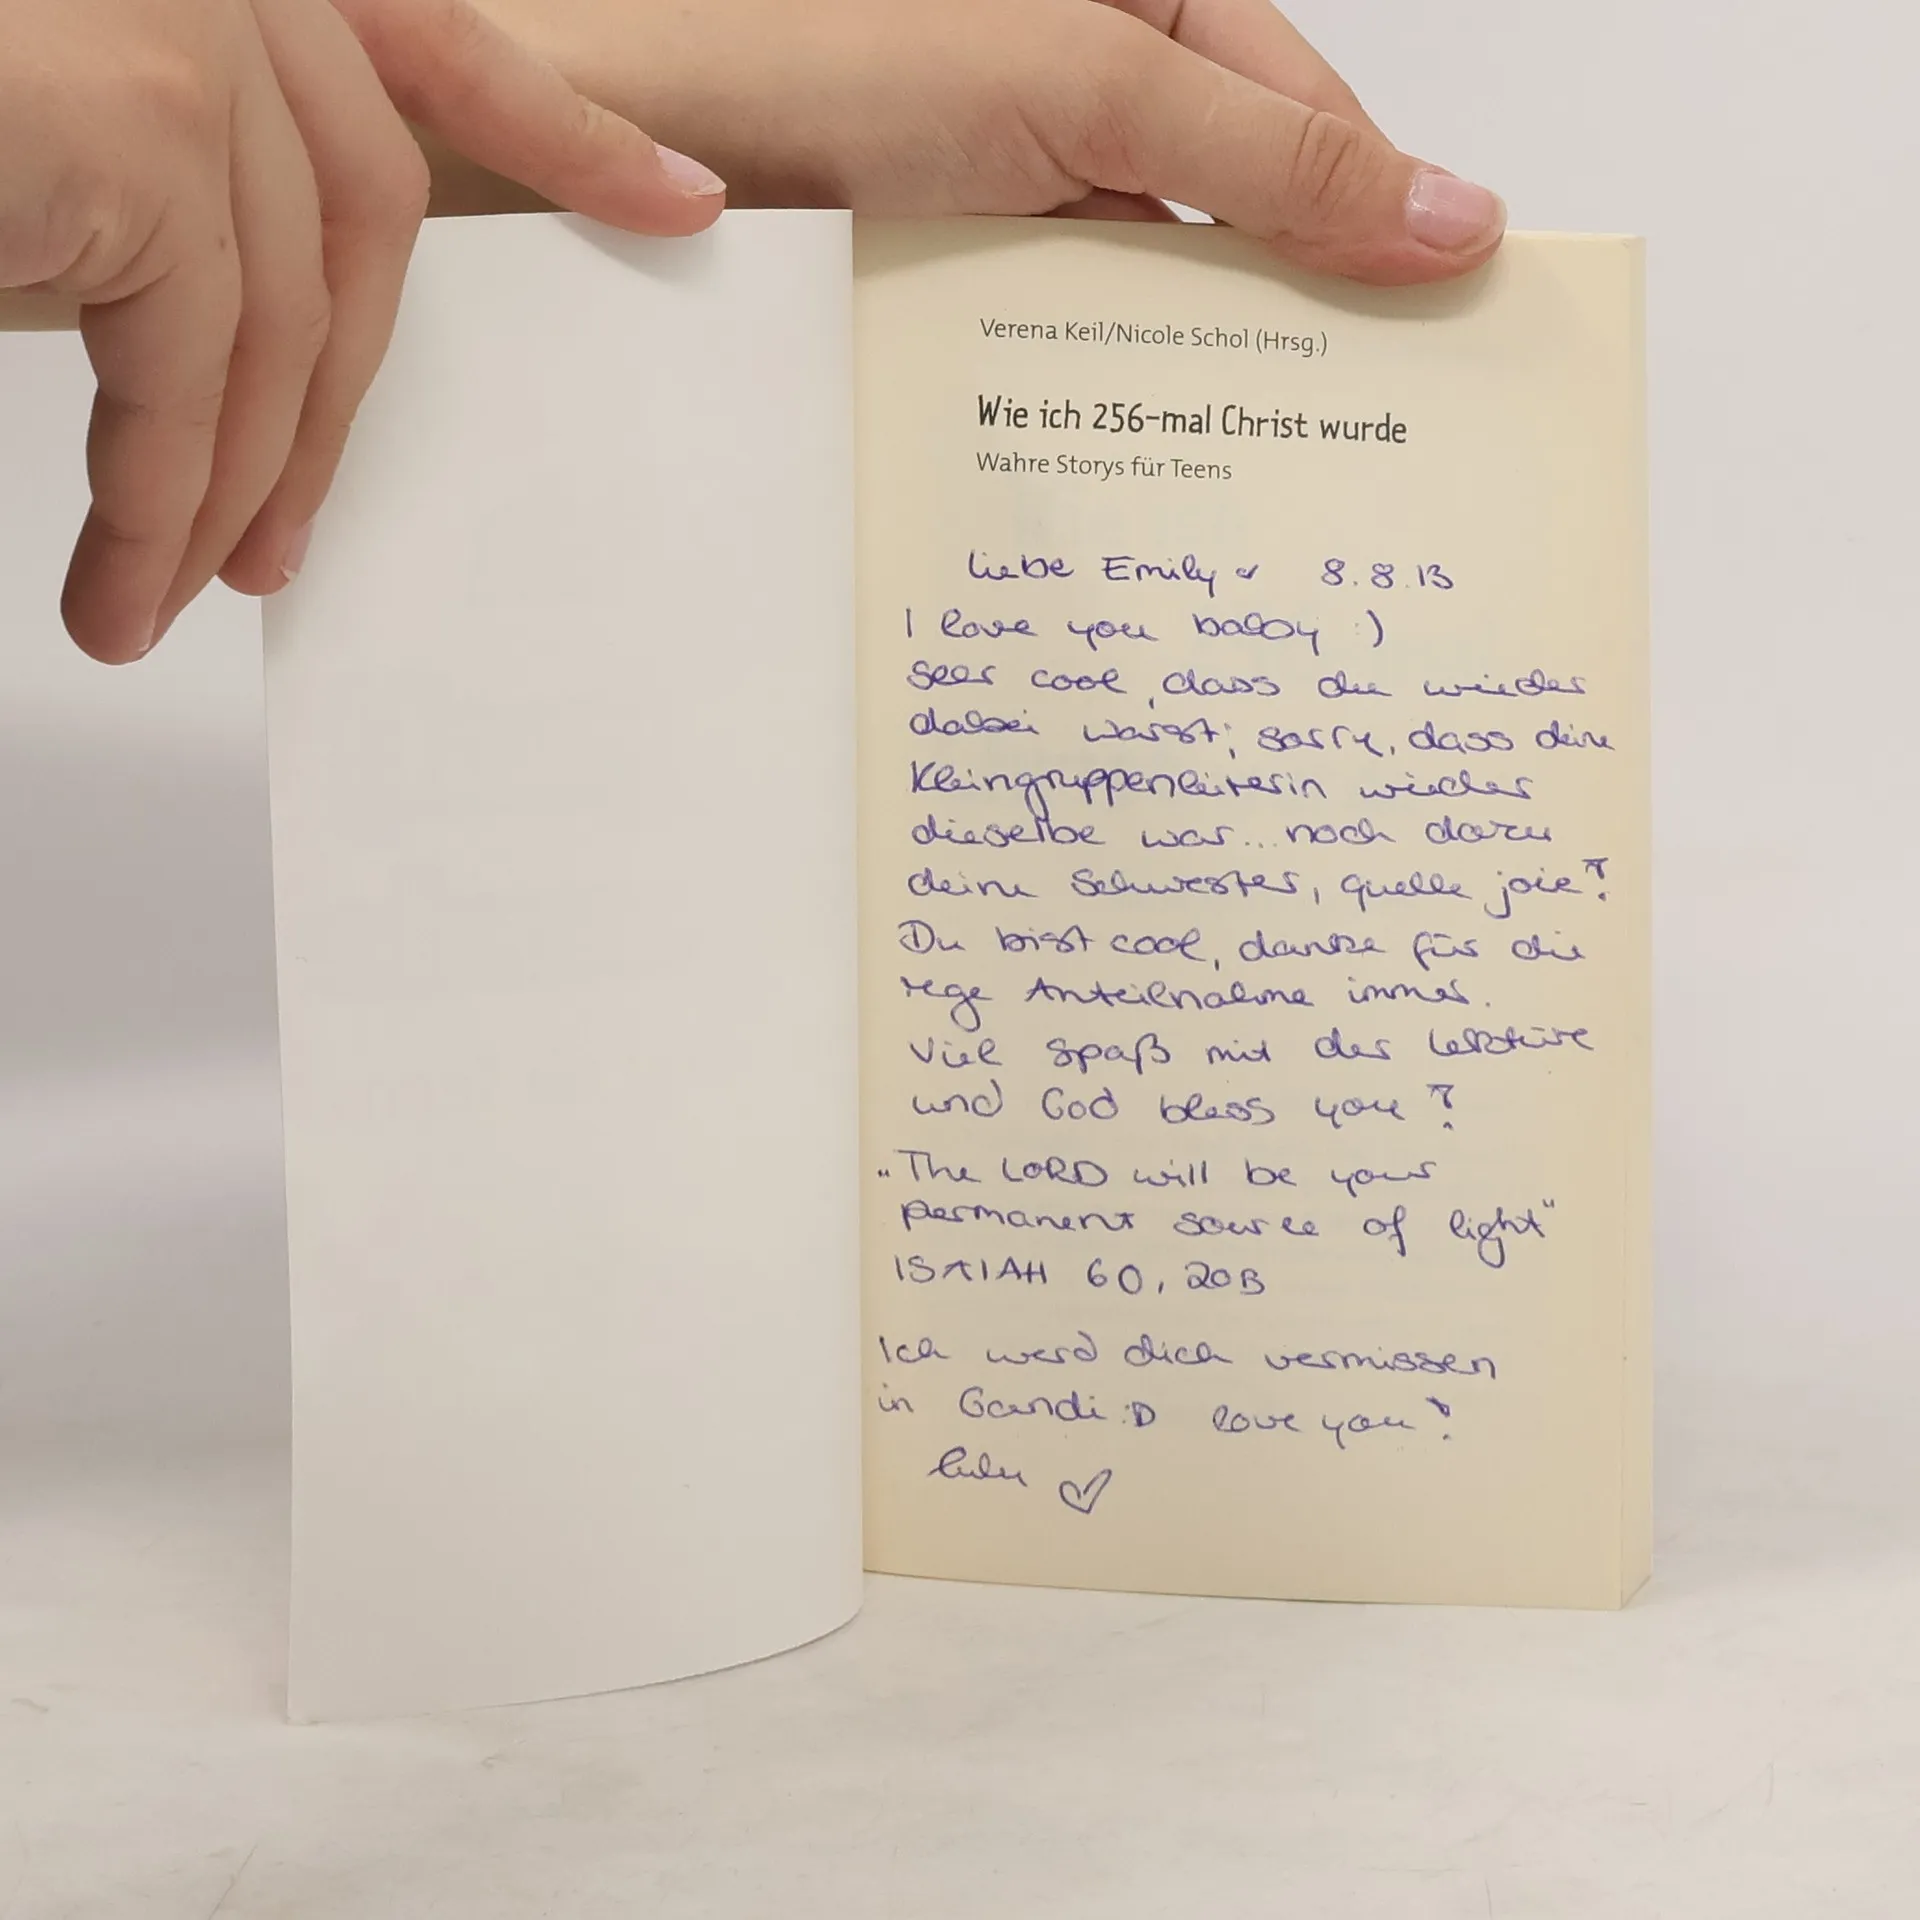 Verena Keil/Nicole Schol (Hrsg.)
Wie ich 256-mal Christ wurde
Wahre Storys für Teens
liebe Emily 8.8.13
I love you baby :)
seer cool, dass du wieder
dabei warst; sorry, dass deine
Kleingruppenleiterin wieder
dieselbe war... noch dazu
deine Schwester, quelle joie!
Du bist cool, danke für die
rege Anteilnahme immer.
Viel spaß mit der lektüre
und God bless you!
„The LORD will be your
permanent source of light"
ISAIAH 60, 20B
Ich werd dich vermissen
in Gandi :D love you!
lulu ♡